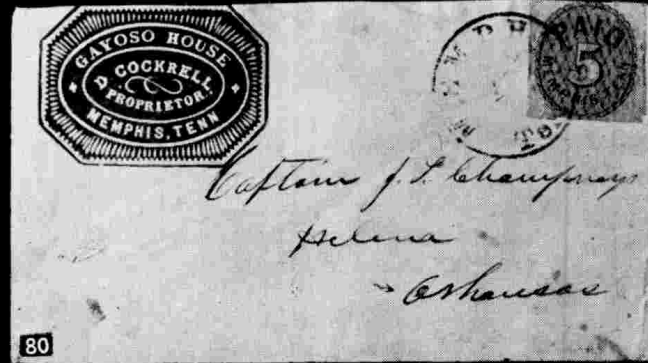 GAYOSO HOUSE
D COCKRELL
PROPRIETOR.
MEMPHIS, TENN
MEMPH
PAID
5
MEMPHIS, TEN
Captain J. L. Champney
Helena
Arkansas
80